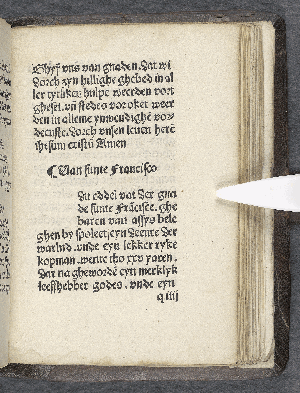 Ghyf vns van gnaden. dat wi
dorch zyn hillighe ghebed in al
ler tytliker hulpe werden vort
gheset. vñ stedes vor oket wer
den in alleme ynwendighẽ vor
denste. dorch vnsen leuen herẽ
ihesum cristũ Amen
¶ Uan sunte Francisco
du eddel vat der gna
de sunte Frãcisce. ghe
baren van assys bele
ghen by spoleet. eyn deente der
warhd. vnde eyn lekker ryke
kopman. wente tho xxv yaren.
Dar na ghewordẽ eyn merklyk
leefhebber godes. vnde eyn
q iiij